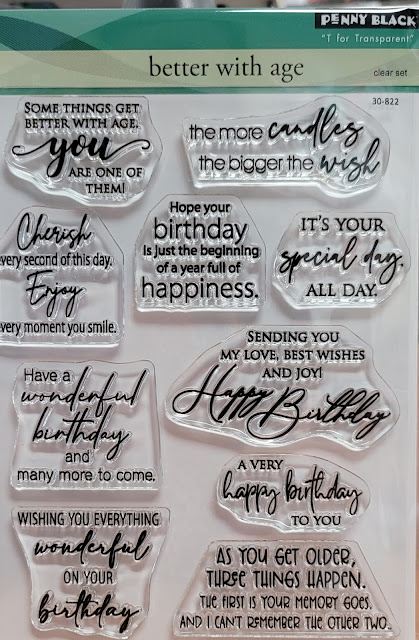 PENNY BLACK
"T for Transparent"
better with age
clear set
30-822
SOME THINGS GET
BETTER WITH AGE.
you
ARE ONE OF
THEM!
the more candles
the bigger the wish
Cherish
every second of this day.
Enjoy
every moment you smile.
Hope your
birthday
is just the beginning
of a year full of
happiness.
IT'S YOUR
special day.
ALL DAY.
SENDING YOU
MY LOVE, BEST WISHES
AND JOY!
Happy Birthday
Have a
wonderful
birthday
and
many more to come.
A VERY
happy birthday
TO YOU
WISHING YOU EVERYTHING
wonderful
ON YOUR
birthday
AS YOU GET OLDER,
THREE THINGS HAPPEN.
THE FIRST IS YOUR MEMORY GOES,
AND I CAN'T REMEMBER THE OTHER TWO..